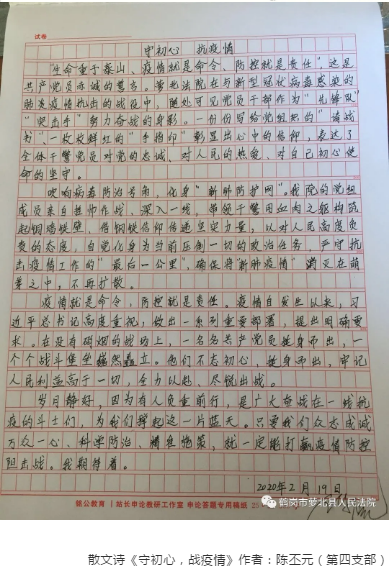 试卷
守初心 抗疫情
"生命重于泰山、疫情就是命令、防控就是责任",这是
共产党员赤诚的誓言。萝北法院在与新型冠状病毒感染的
肺炎疫情抗击的战役中,随处可见党员干部作为"先锋队"
"突击手"努力奋战的身影。一份份写给党组织的"请战
书"、一枚枚鲜红的"手指印"彰显出心中的信仰,表达了
全体干警党员对党的忠诚、对人民的热爱、对自己初心使
命的坚守。
吹响病毒防治号角,化身"新肺防护网"。我院的党组
成员亲自挂帅作战、深入一线,带领干警用血肉之躯构筑
起铜墙铁壁、借钢铁信仰传递坚实力量,以对人民高度负
责的态度,自觉化身为当前压倒一切的政治任务,严守抗
击疫情工作的"最后一公里",确保将"新肺疫情"消灭在萌
芽之中,不再扩散。
疫情就是命令,防控就是责任。疫情自发生以来,习
近平总书记高度重视,做出一系列重要部署,提出明确要
求。在没有硝烟的战场上,一名名共产党员挺身而出,一
个个战斗堡垒巍然矗立。他们不忘初心、挺身而出,牢记
人民利益高于一切,全力以赴、尽锐出战。
岁月静好,因为有人负重前行,是广大奋战在一线抗
疫的斗士们,为我们撑起这一片蓝天。只要我们众志成城
万众一心、科学防治、精准施策,就一定能打赢疫情防控
阻击战。我期待着。
2020年2月19日
锦公教育 | 站长申论教研工作室 申论答题专用稿纸
鹤岗市萝北县人民法院
散文诗《守初心,战疫情》作者:陈丕元(第四支部)